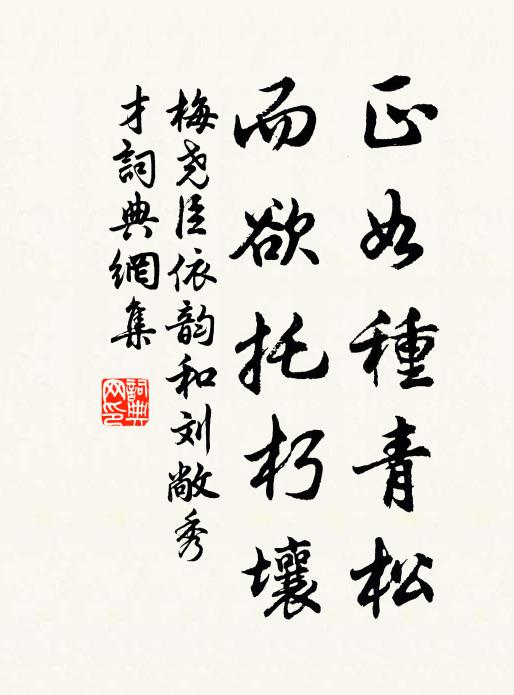 正如種青松
而欲托朽壤
梅尧臣依韵和刘敞秀
才詞典網集
詞典
网印